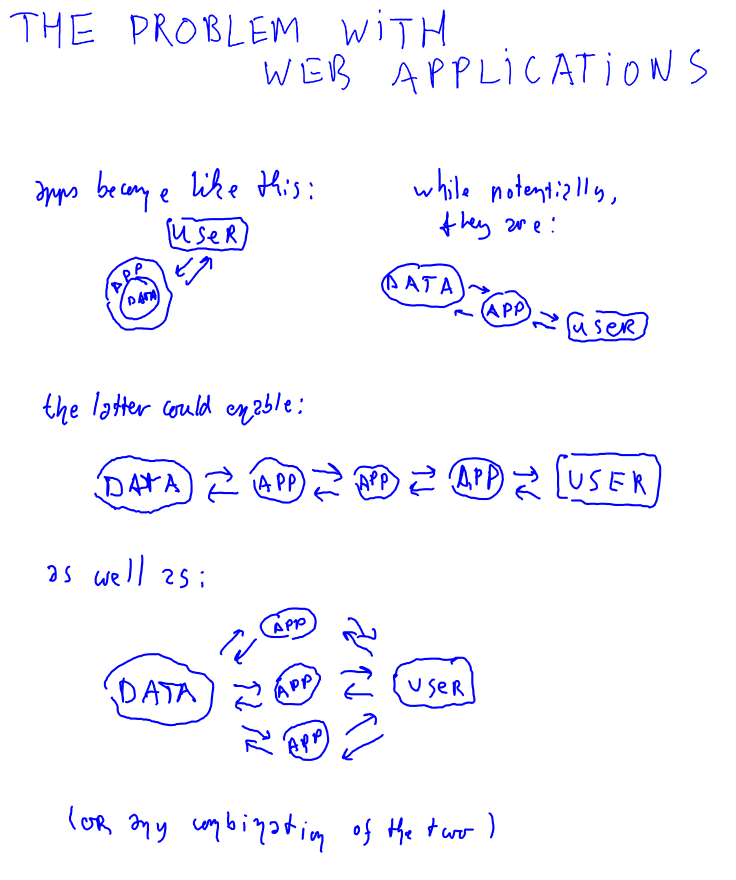 THE PROBLEM WITH
WEB APPLICATIONS
apps become like this:
USER
APP
DATA
while potentially,
they are:
DATA
APP
USER
the latter could enable:
DATA APP APP APP USER
as well as:
APP
DATA APP USER
APP
(OR any combination of the two)